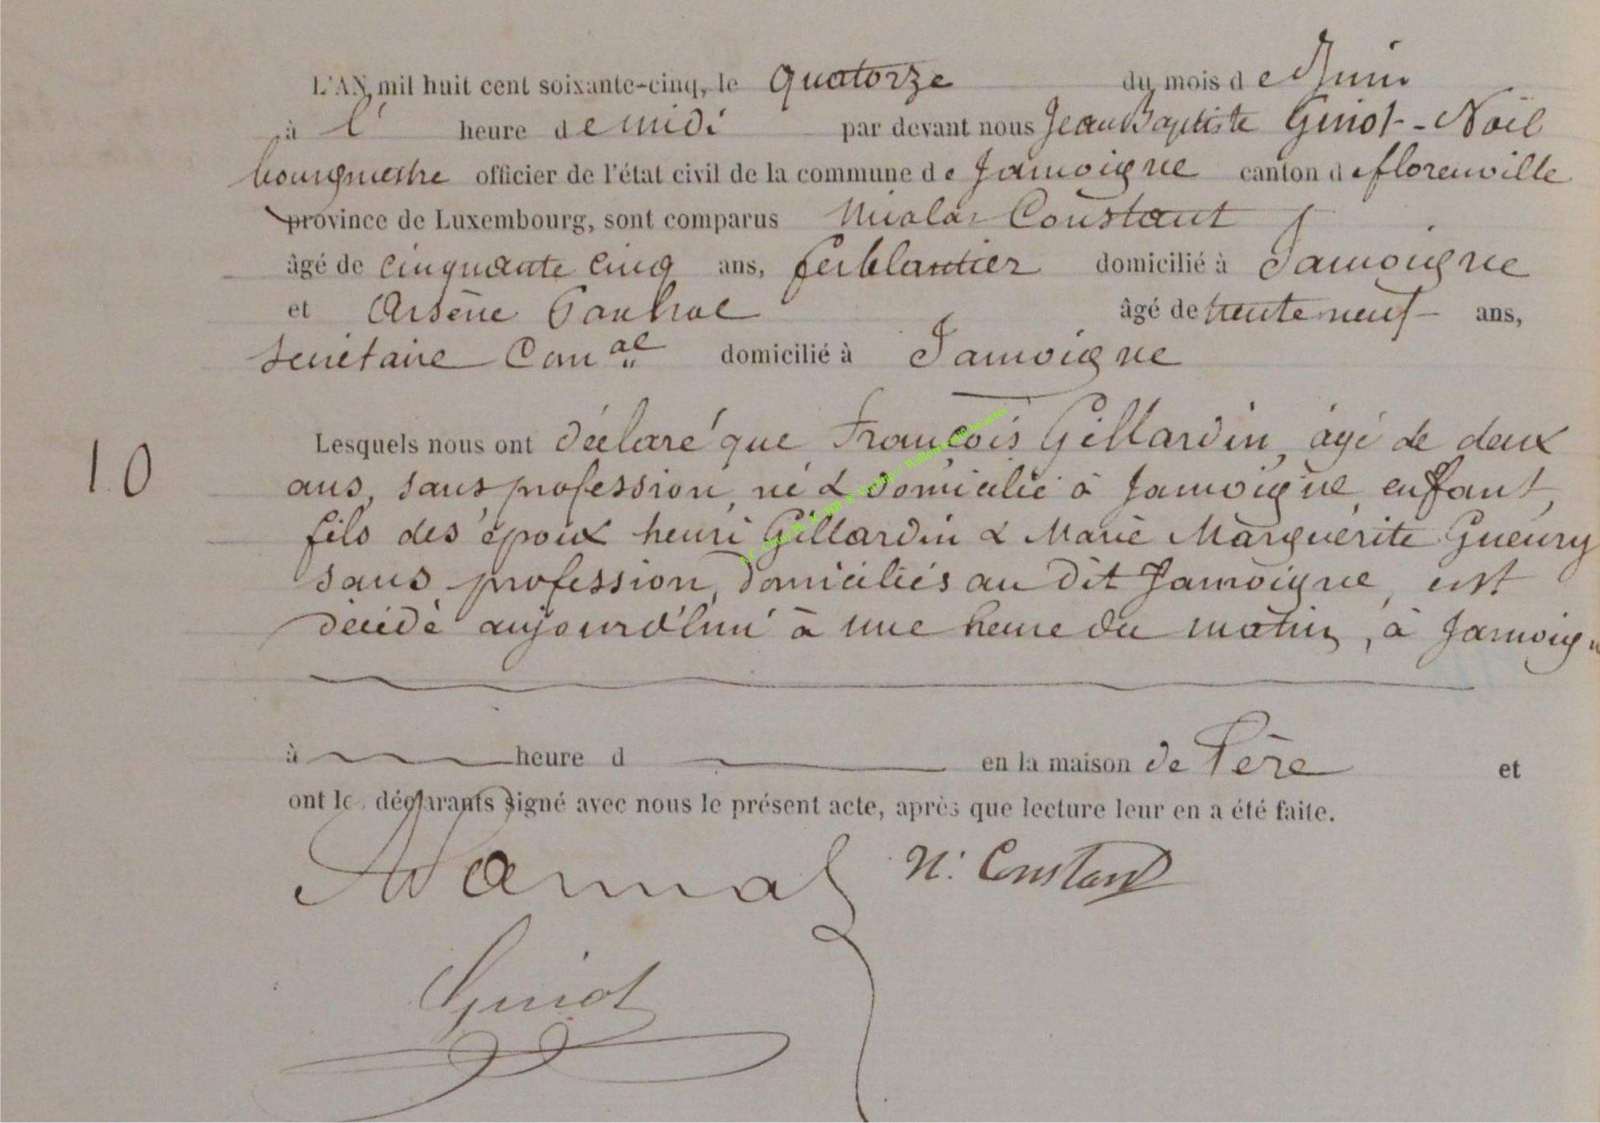 L'AN mil huit cent soixante-cinq, le quatorze du mois de Juin
à l' heure de midi par devant nous Jean Baptiste Guiot-Noël
bourgmestre officier de l'état civil de la commune de Jamoigne canton de florenville
province de Luxembourg, sont comparus Nicolas Constant
âgé de cinquante cinq ans, ferblantier domicilié à Jamoigne
et Arsène âgé de trente neuf ans,
secrétaire Com.al domicilié à Jamoigne
10
Lesquels nous ont déclaré que François Gillardin, âgé de deux
ans, sans profession, né & domicilié à Jamoigne enffant,
fils des époux henri Gillardin & Marie Marguérite Gueury
sans profession, domiciliés au dit Jamoigne, est
décédé aujourd'hui à une heure du matin, à Jamoigne
à heure d en la maison de Père et
ont les déclarants signé avec nous le présent acte, après que lecture leur en a été faite.
N. Constant
Guiot